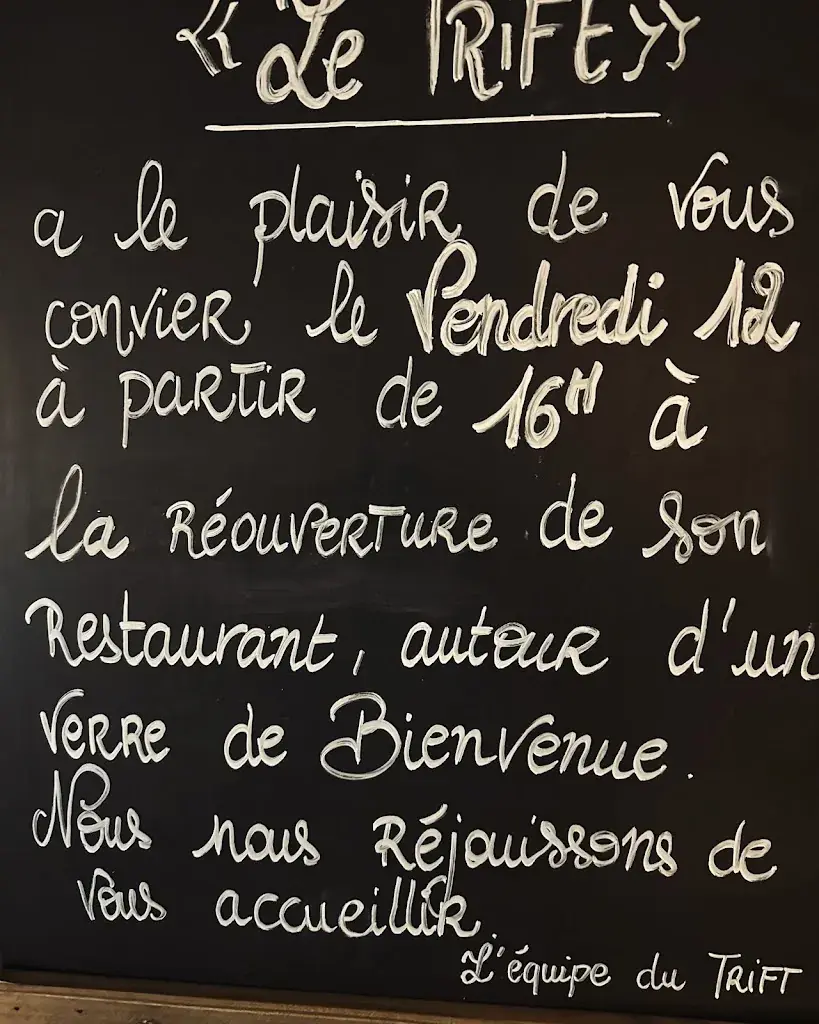 « Le TRIFT »
a le plaisir de vous
convier le Vendredi 12
à partir de 16H à
la Réouverture de son
Restaurant, autour d'un
verre de Bienvenue.
Nous nous Réjouissons de
vous accueillir.
L'équipe du TRIFT